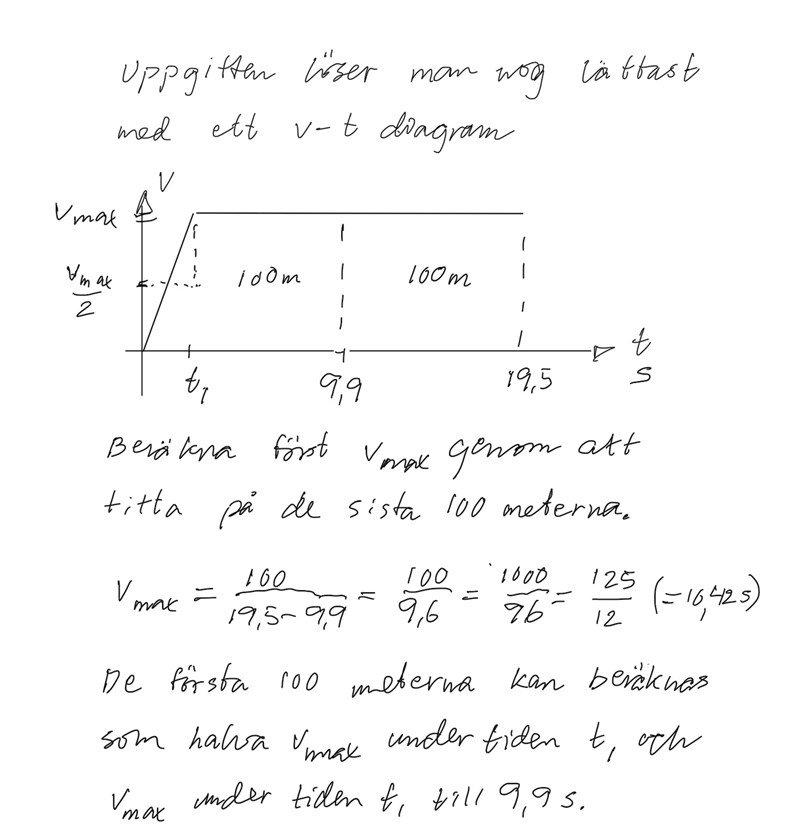 Uppgiften löser man nog lättast
med ett v-t diagram
V
Vmax
Vmax
2
100m
100m
t
s
t₁
9,9
19,5
Beräkna först Vmax genom att
titta på de sista 100 meterna.
Vmax = 100/(19,5-9,9) = 100/9,6 = 1000/96 = 125/12 (=10,42 s)
De första 100 meterna kan beräknas
som halva Vmax under tiden t₁ och
Vmax under tiden t₁ till 9,9 s.